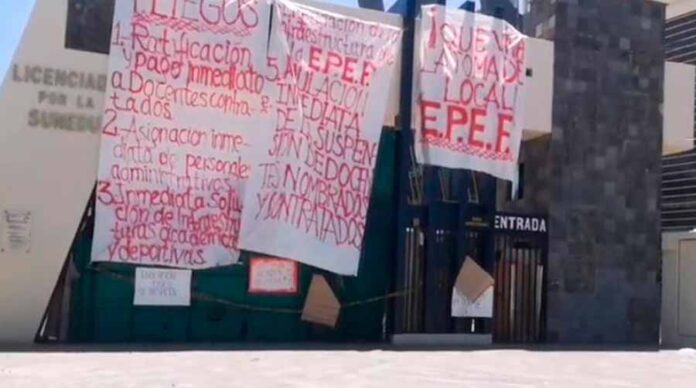 LICENCIAD
POR LA
SUNEDU
PLIEGOS
1. Ratificación
y pago inmediato
a Docentes contra-
tados.
2- Asignación inme-
diata de personales
administrativos.
3. Inmediata solu
ción de Infraestruc
turas académicas
y depotivas.
infraestructura de
la E.P.E.F.
5. ANULACIÓN
INMEDIATA
DE LA SUSPEN
SIÓN DE DOCEN
TES NOMBRADOS
Y CONTRATADOS
¡QUE VIVA
LA TOMA DE
LOCAL!
E.P.E.F.
ENTRADA